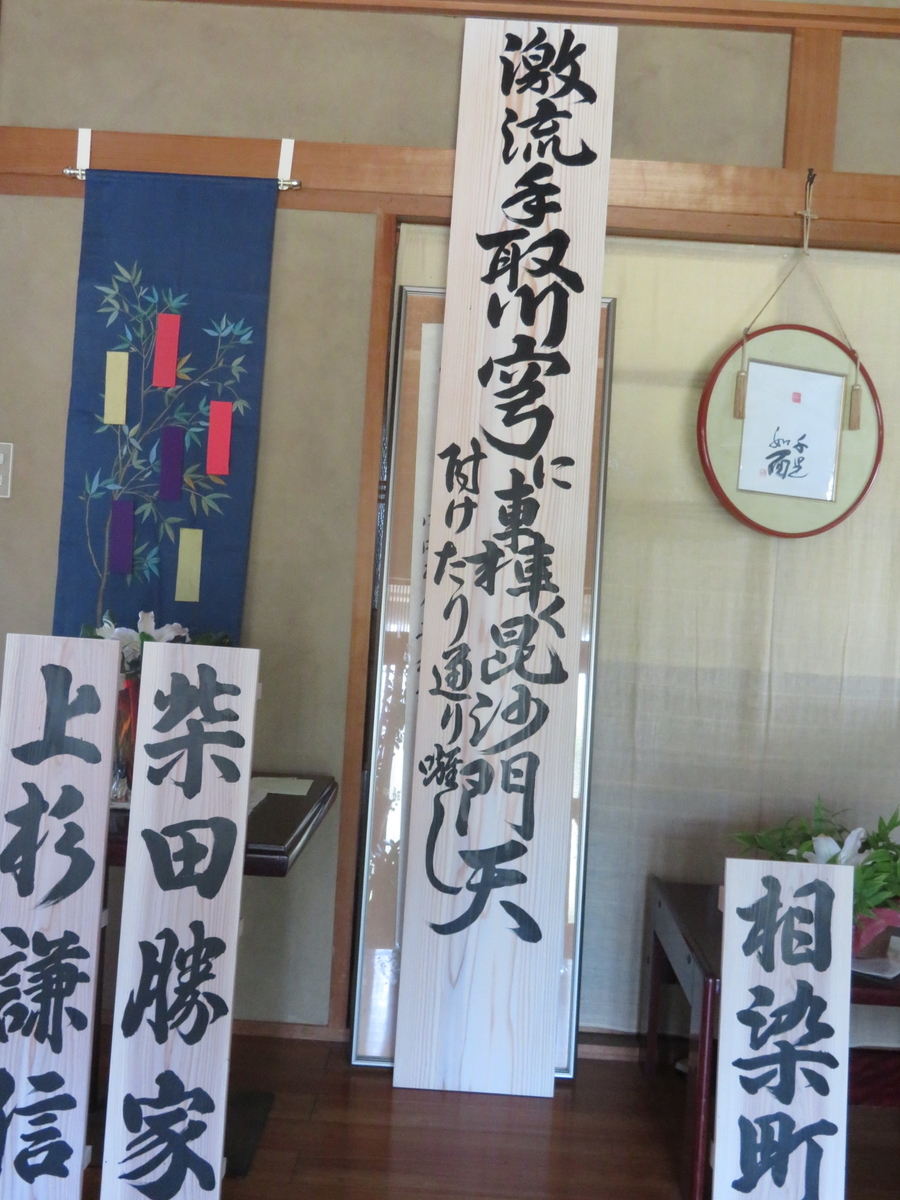 相染町
激流手取川穹に く毘沙門天
附けたり通り囃し
柴田勝家
上杉謙信